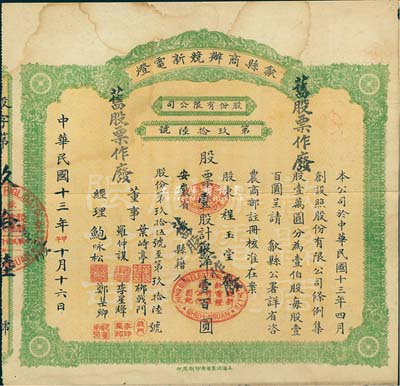 歙縣商辦競新電燈
股份有限公司
第玖拾陸號
舊股票作廢
舊股票作廢
本公司於中華民國十三年四月
創設照股份有限公司條例集
股壹萬圓分為壹伯股每股壹
百圓呈請 歙縣公署詳省咨
農商部註冊核准在案
股東程玉堂
安徽省歙縣籍
股票壹股計銀洋壹百圓
股份第玖拾伍號至第玖拾陸號
董事
黃峙亭
羅仲謀
柳戟門
李星驛
經理
鮑咏松
鄭某卿
中華民國十三年十月十六日